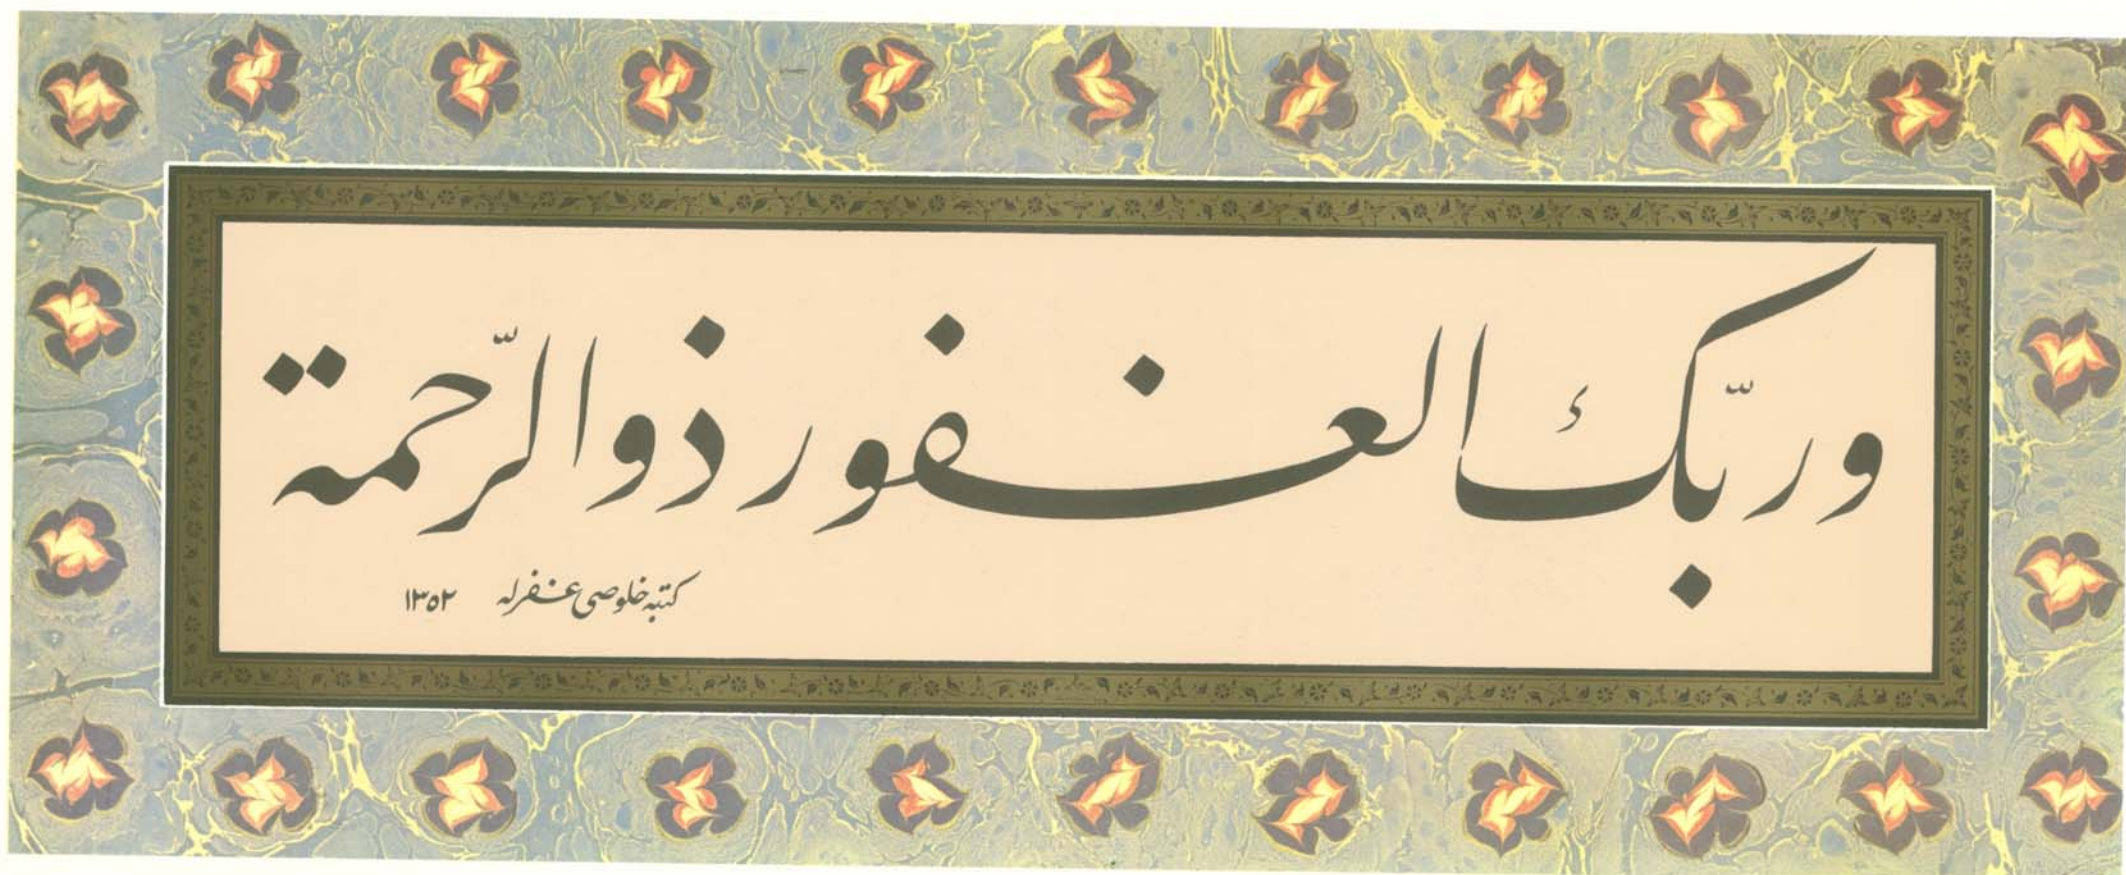 وربّك الغفور ذوالرّحمة
كتبه خلوصی غفرله ١٣٥٢